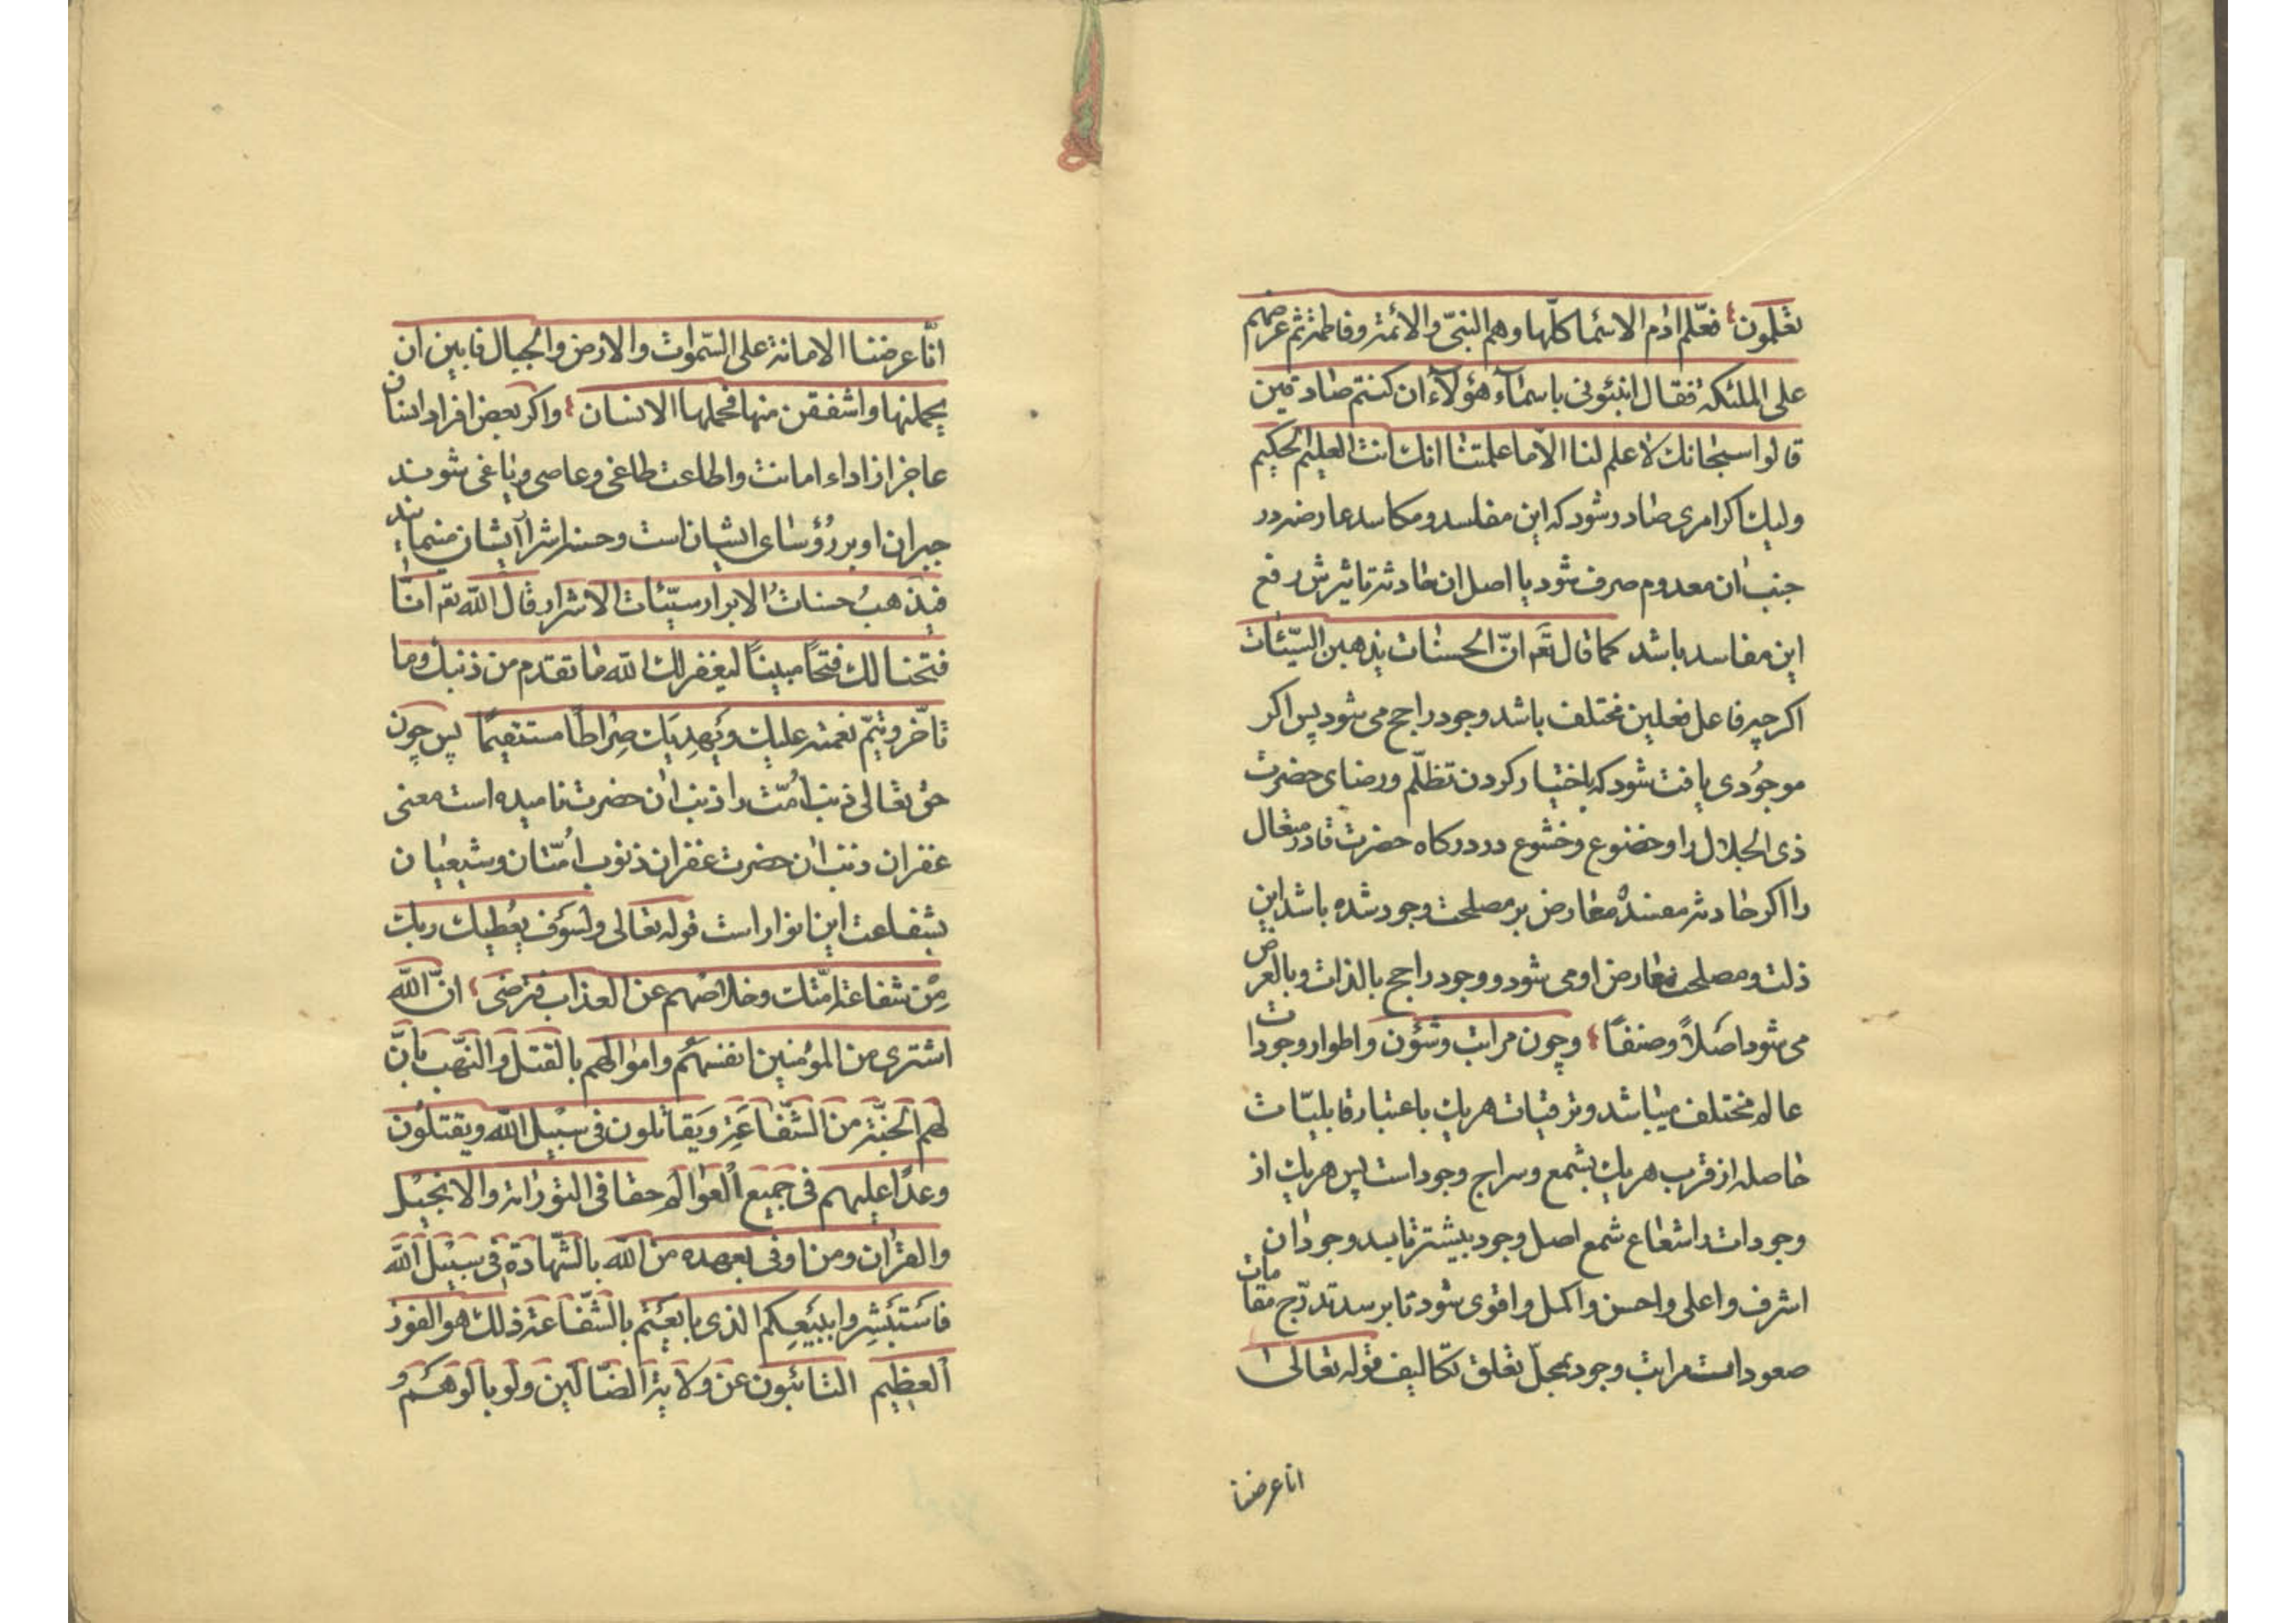 تعلمون فعلّم ادم الاسما كلّها وهم النبىّ والائمة وفاطمة ثم عرضهم
على الملئكة فقال انبئونى باسمآء هؤلآء ان كنتم صادقين
قالوا سبحانك لا علم لنا الّا ما علمتنا انك انت العليم الحكيم
وليك اكر امرى صادر شود كه اين مفاسد ومكاسد عارضه در
جنب ان معدوم صرف شود يا اصل ان حادثه تاثيرش رفع
اين مفاسد باشد كما قال تعَ انّ الحسنات يذهبن السيّئات
اكرچه فاعل فعلين مختلف باشد وجود راجح مى شود پس اكر
موجُودى يافت شود كه باختيار كردن تظلّم ورضاى حضرت
ذى الجلال را وخضوع وخشوع در دركاه حضرت قادر متعال
را اكر حادثه مفسدهٔ معارض بر مصلحت وجود شده باشد اين
ذلت ومصلحت معارض او مى شود ووجود راجح بالذات وبالعرض
مى شود اصَلاً وصنفًا وچون مراتب وشؤن واطوار وجودات
عالم مختلف ميباشد وترقيات هريك باعتبار قابليّات
حاصله از قرب هريك بشمع وسراج وجود است پس هريك از
وجودات را شعاع شمع اصل وجود بيشتر تابيد وجود ان
اشرف واعلى واحسن واكمل واقوى شود تا برسد تدرّج مقامات
صعود است مراتب وجود بمحلّ تعلق تكاليف قوله تعالى
انا عرضنا
انّا عرضنا الامانة على السّموات والارض والجبال فابين ان
يحملنها واشفقن منها فحملها الانسان واكر بعض افراد انسان
عاجز از اداء امانت واطاعت طاغى وعاصى وياغى شوند
جبران او بر رُؤساى ايشان است وحسنه اشرا ايشان مينمايند
فيذهبُ حسناتُ الابرار سيّئات الاشرار قال الله تعَ انّا
فتحنا لك فتحًا مبينًا ليغفر لك الله ما تقدم من ذنبك وما
تاخّر ويتمّ نعمته عليك ويَهدِيَك صِراطًا مستقيمًا پس چون
حق تعالى ذنب امُّت را ذنب ان حضرت ناميده است معنى
غفران ذنب ان حضرت غفران ذنوب امُّتان وشيعيان
بشفاعت اين انوار است قوله تعالى ولسَوف يعُطيك ربك
مِنْ شفاعة امّتك وخلاصُهم عن العذاب فترضى انّ الله
اشترى من المؤمنين انفسهُم واموالهم بالقتل والنّهب بانّ
لهم الجنّة من الشّفاعَة ويَقاتلون فى سبيل الله ويقتلون
وعدًا عليهم فى جميع العوالم حقا فى التورٰاة والانجيل
والقرٰان ومن اوفى بعهده من الله بالشّهادة فى سبيل الله
فاستَبشِروا ببيَعِكم الذى بايعتم بالشّفاعة ذلك هو الفوز
العظيم التائبون عن ولاية الضّالّين ولو بالوهم و